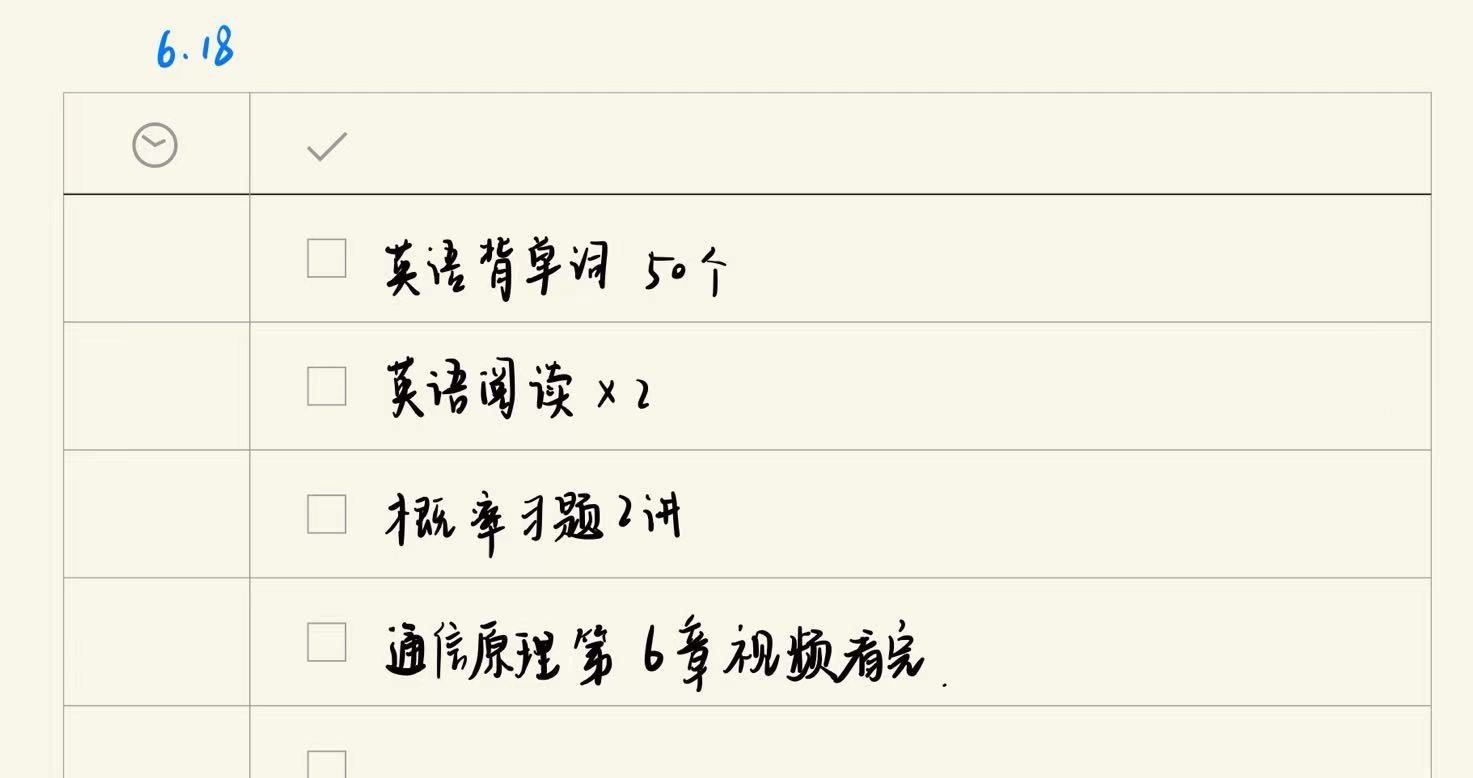 6.18
英语背单词 50个
英语阅读 ×2
概率习题2讲
通信原理第6章视频看完.